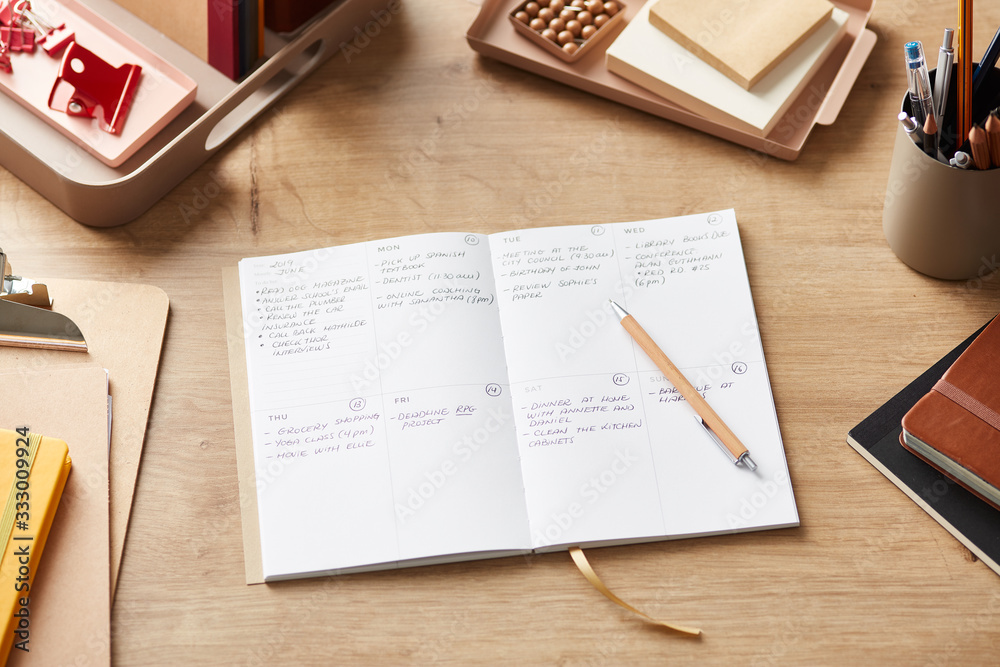 2019
JUNE
• READ 600 MAGAZINE
• ANSWER SCHOOL'S EMAIL
• CALL THE PLUMBER
• RENEW THE CAR
INSURANCE
• CALL BACK MATHILDE
• CHECK THOR
INTERVIEWS
MON
10
- PICK UP SPANISH
TEXTBOOK
- DENTIST (11:30 am)
- ONLINE COACHING
WITH SAMANTHA (8pm)
TUE
11
- MEETING AT THE
CITY COUNCIL (9:30am)
- BIRTHDAY OF JOHN
- REVIEW SOPHIE'S
PAPER
WED
12
- LIBRARY BOOKS DUE
- CONFERENCE
ALAN
• RED RD. #25
(6pm)
THU
13
- GROCERY SHOPPING
- YOGA CLASS (4pm)
- MOVIE WITH ELLIE
FRI
14
- DEADLINE RPG
PROJECT
SAT
15
- DINNER AT HOME
WITH ANNETTE AND
DANIEL
- CLEAN THE KITCHEN
CABINETS
SUN
16
- BARBECUE AT
Adobe Stock | #333009924
Adobe Stock